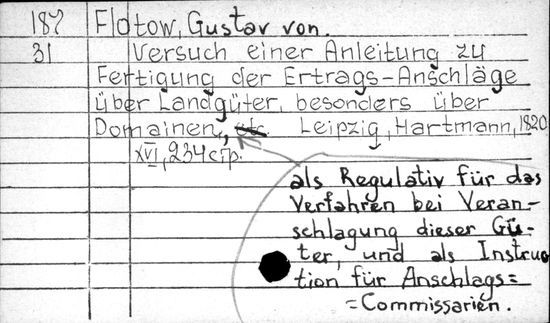 187 Flotow, Gustav von.
31 Versuch einer Anleitung zu
Fertigung der Ertrags-Anschläge
über Landgüter, besonders über
Domainen, etc. Leipzig, Hartmann, 1820
XVI, 234 стр.
als Regulativ für das
Verfahren bei Veran-
schlagung dieser Gü-
ter, und als Instruc
tion für Anschlags=
=Commissarien.